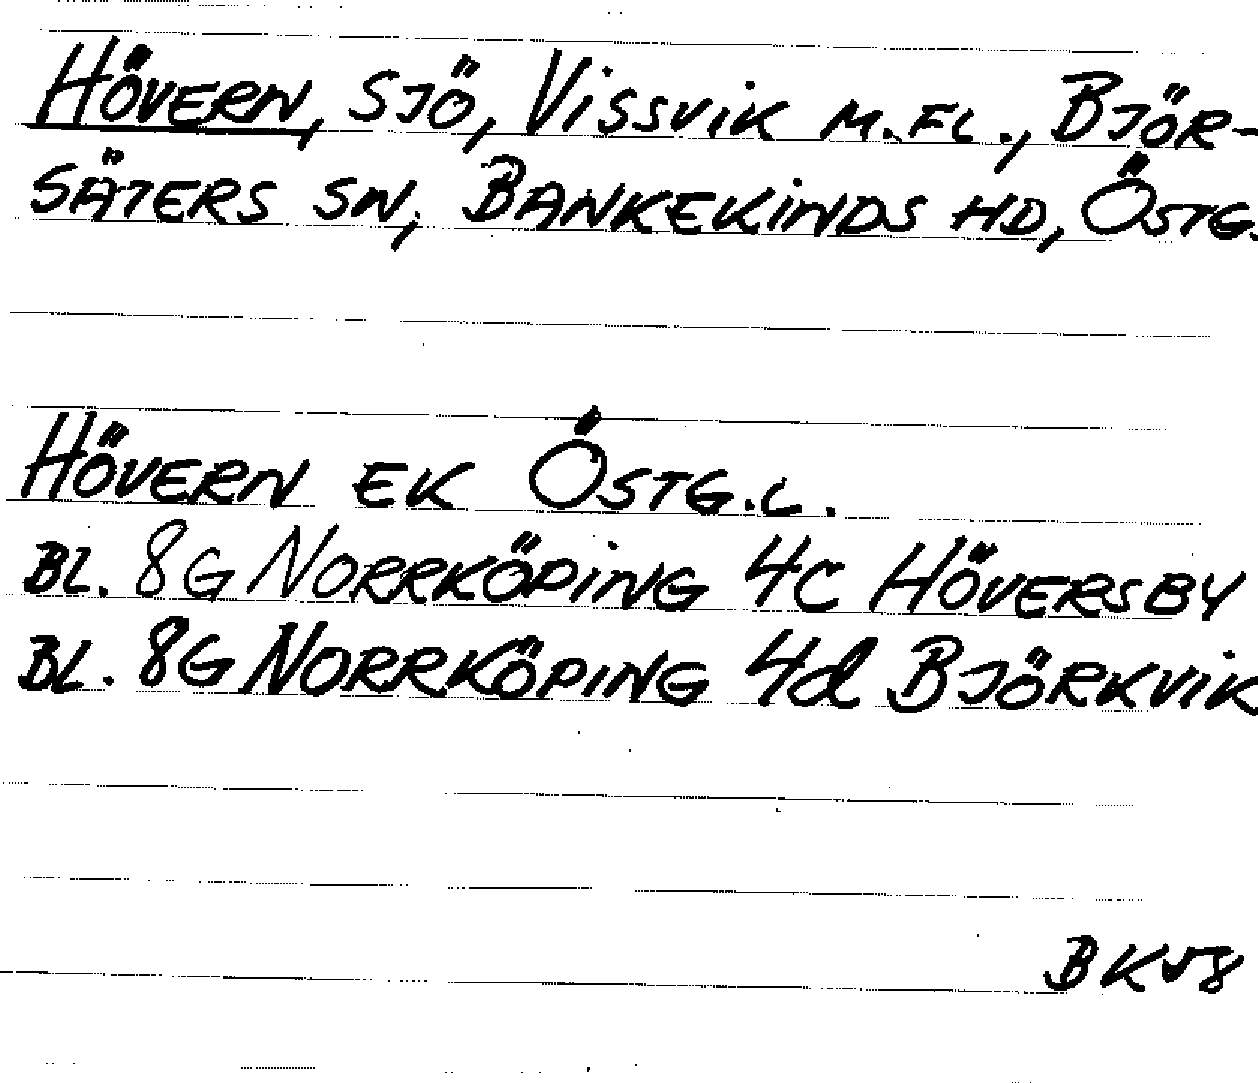 HÖVERN, SJÖ, VISSVIK M.FL., BJÖR-
SÄTERS SN, BANKEKINDS HD, ÖSTG.
HÖVERN EK ÖSTG.L.
BL. 8G NORRKÖPING 4C HÖVERSBY
BL. 8G NORRKÖPING 4d BJÖRKVIK